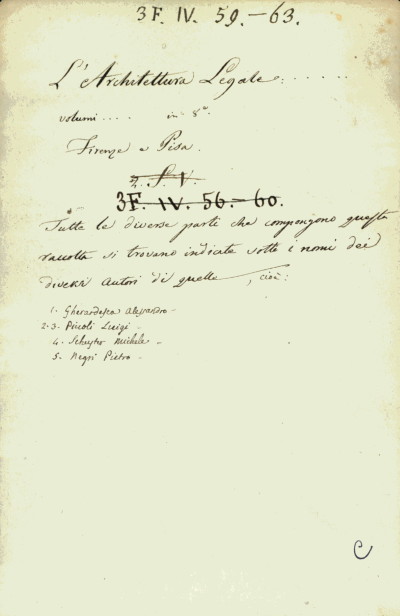 3F. IV. 59.-63.
L'Architettura Legale: . . . . .
volumi .... in 8°
Firenze e Pisa.
2. S. V.
3F. IV. 56.-60.
Tutte le diverse parti che compongono questa
raccolta si trovano indicate sotto i nomi dei
diversi autori di quelle, cioè:
1. Gherardesca Alessandro -
2.3. Piccoli Luigi -
4. Michele -
5. Negri Pietro -
C